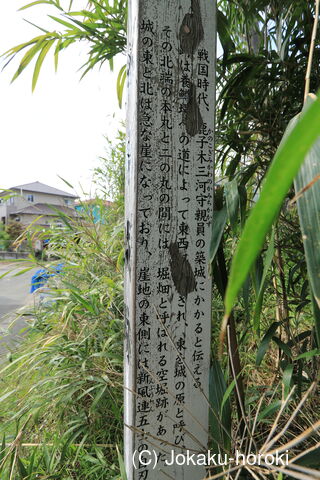 戦国時代、鹿子木三河守親員の築城にかかると伝える。
の道によって東西 され、東を城の原と呼び
その北端の本丸と二の丸の間には、堀畑と呼ばれる空堀跡があ
城の東と北は急な崖になっており、崖地の東側には新風連五
(C) Jokaku-horoki